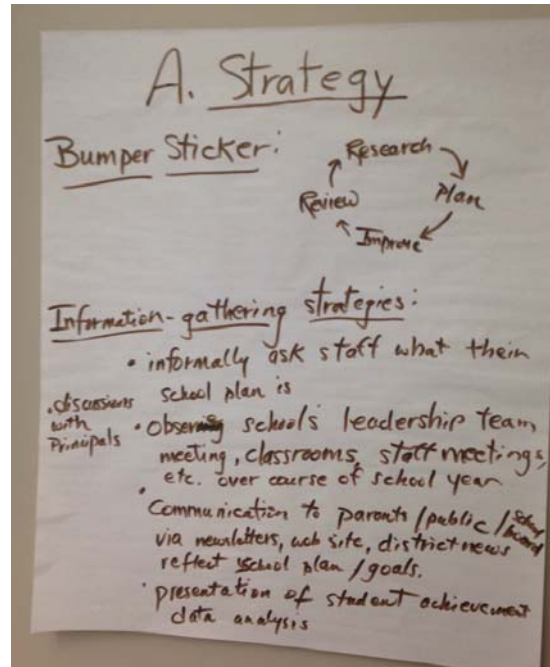 A. Strategy
Bumper Sticker:
Research
Plan
Improve
Review
Information-gathering strategies:
• informally ask staff what their
school plan is
• discussions
with
Principals
• Observing schools leadership team
meeting, classrooms, staff meetings,
etc. over course of school year
• Communication to parents/public/school board
via newsletters, web site, district news
reflect school plan/goals.
• presentation of student achievement
data analysis